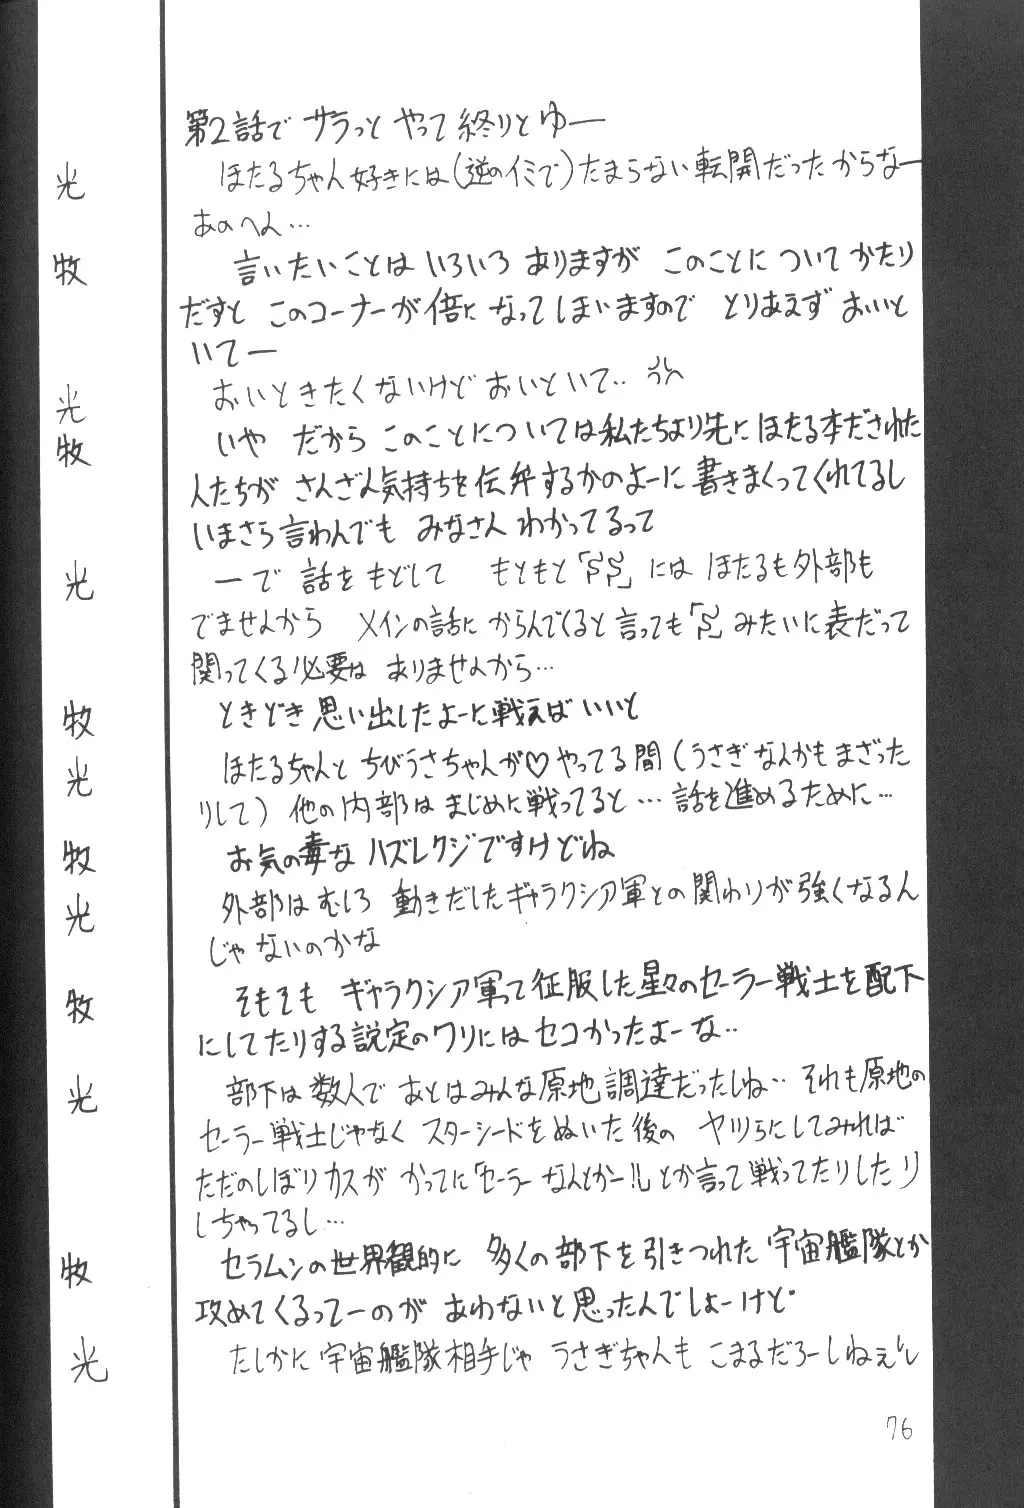 第2話でサラっとやって終りとゆー
光 ほたるちゃん好きには(逆のイミで)たまらない転開だったからなー
あのへん…
牧 言いたいことはいろいろありますが このことについてかたり
だすと このコーナーが倍になってしまいますので とりあえず おいと
いてー
光 おいときたくないけどおいといて‥
牧 いや だから このことについては私たちより先にほたる本だされた
人たちが さんざん気持ちを伝弁するかのよーに書きまくってくれてるし
いまさら言わんでも みなさんわかってるって
光 ーで 話をもどして もともと「SS」にはほたるも外部も
でませんから メインの話にからんでくると言っても「S」みたいに表だって
関ってくる必要は ありませんから…
牧 ときどき思い出したよーに戦えばいいと
光 ほたるちゃんと ちびうさちゃんが♡やってる間(うさぎなんかもまざった
りして)他の内部はまじめに戦ってると…話を進めるために…
牧 お気の毒なハズレクジですけどね
光 外部はむしろ 動きだしたギャラクシア軍との関わりが強くなるん
じゃないのかな
牧 そもそも ギャラクシア軍って征服した星々のセーラー戦士を配下
にしてたりする説定のワリにはセコかったよーな‥
光 部下は数人で あとはみんな原地調達だったしね‥それも原地の
セーラー戦士じゃなく スターシードをぬいた後の ヤツらにしてみれば
ただのしぼりカスが かってに「セーラーなんとかー!!」とか言って戦ってたりしたり
しちゃってるし…
牧 セラムンの世界観的に 多くの部下を引きつれた宇宙艦隊とか
攻めてくるってーのが あわないと思ったんでしょーけど
光 たしかに宇宙艦隊相手じゃ うさぎちゃんも こまるだろーしねぇ
76